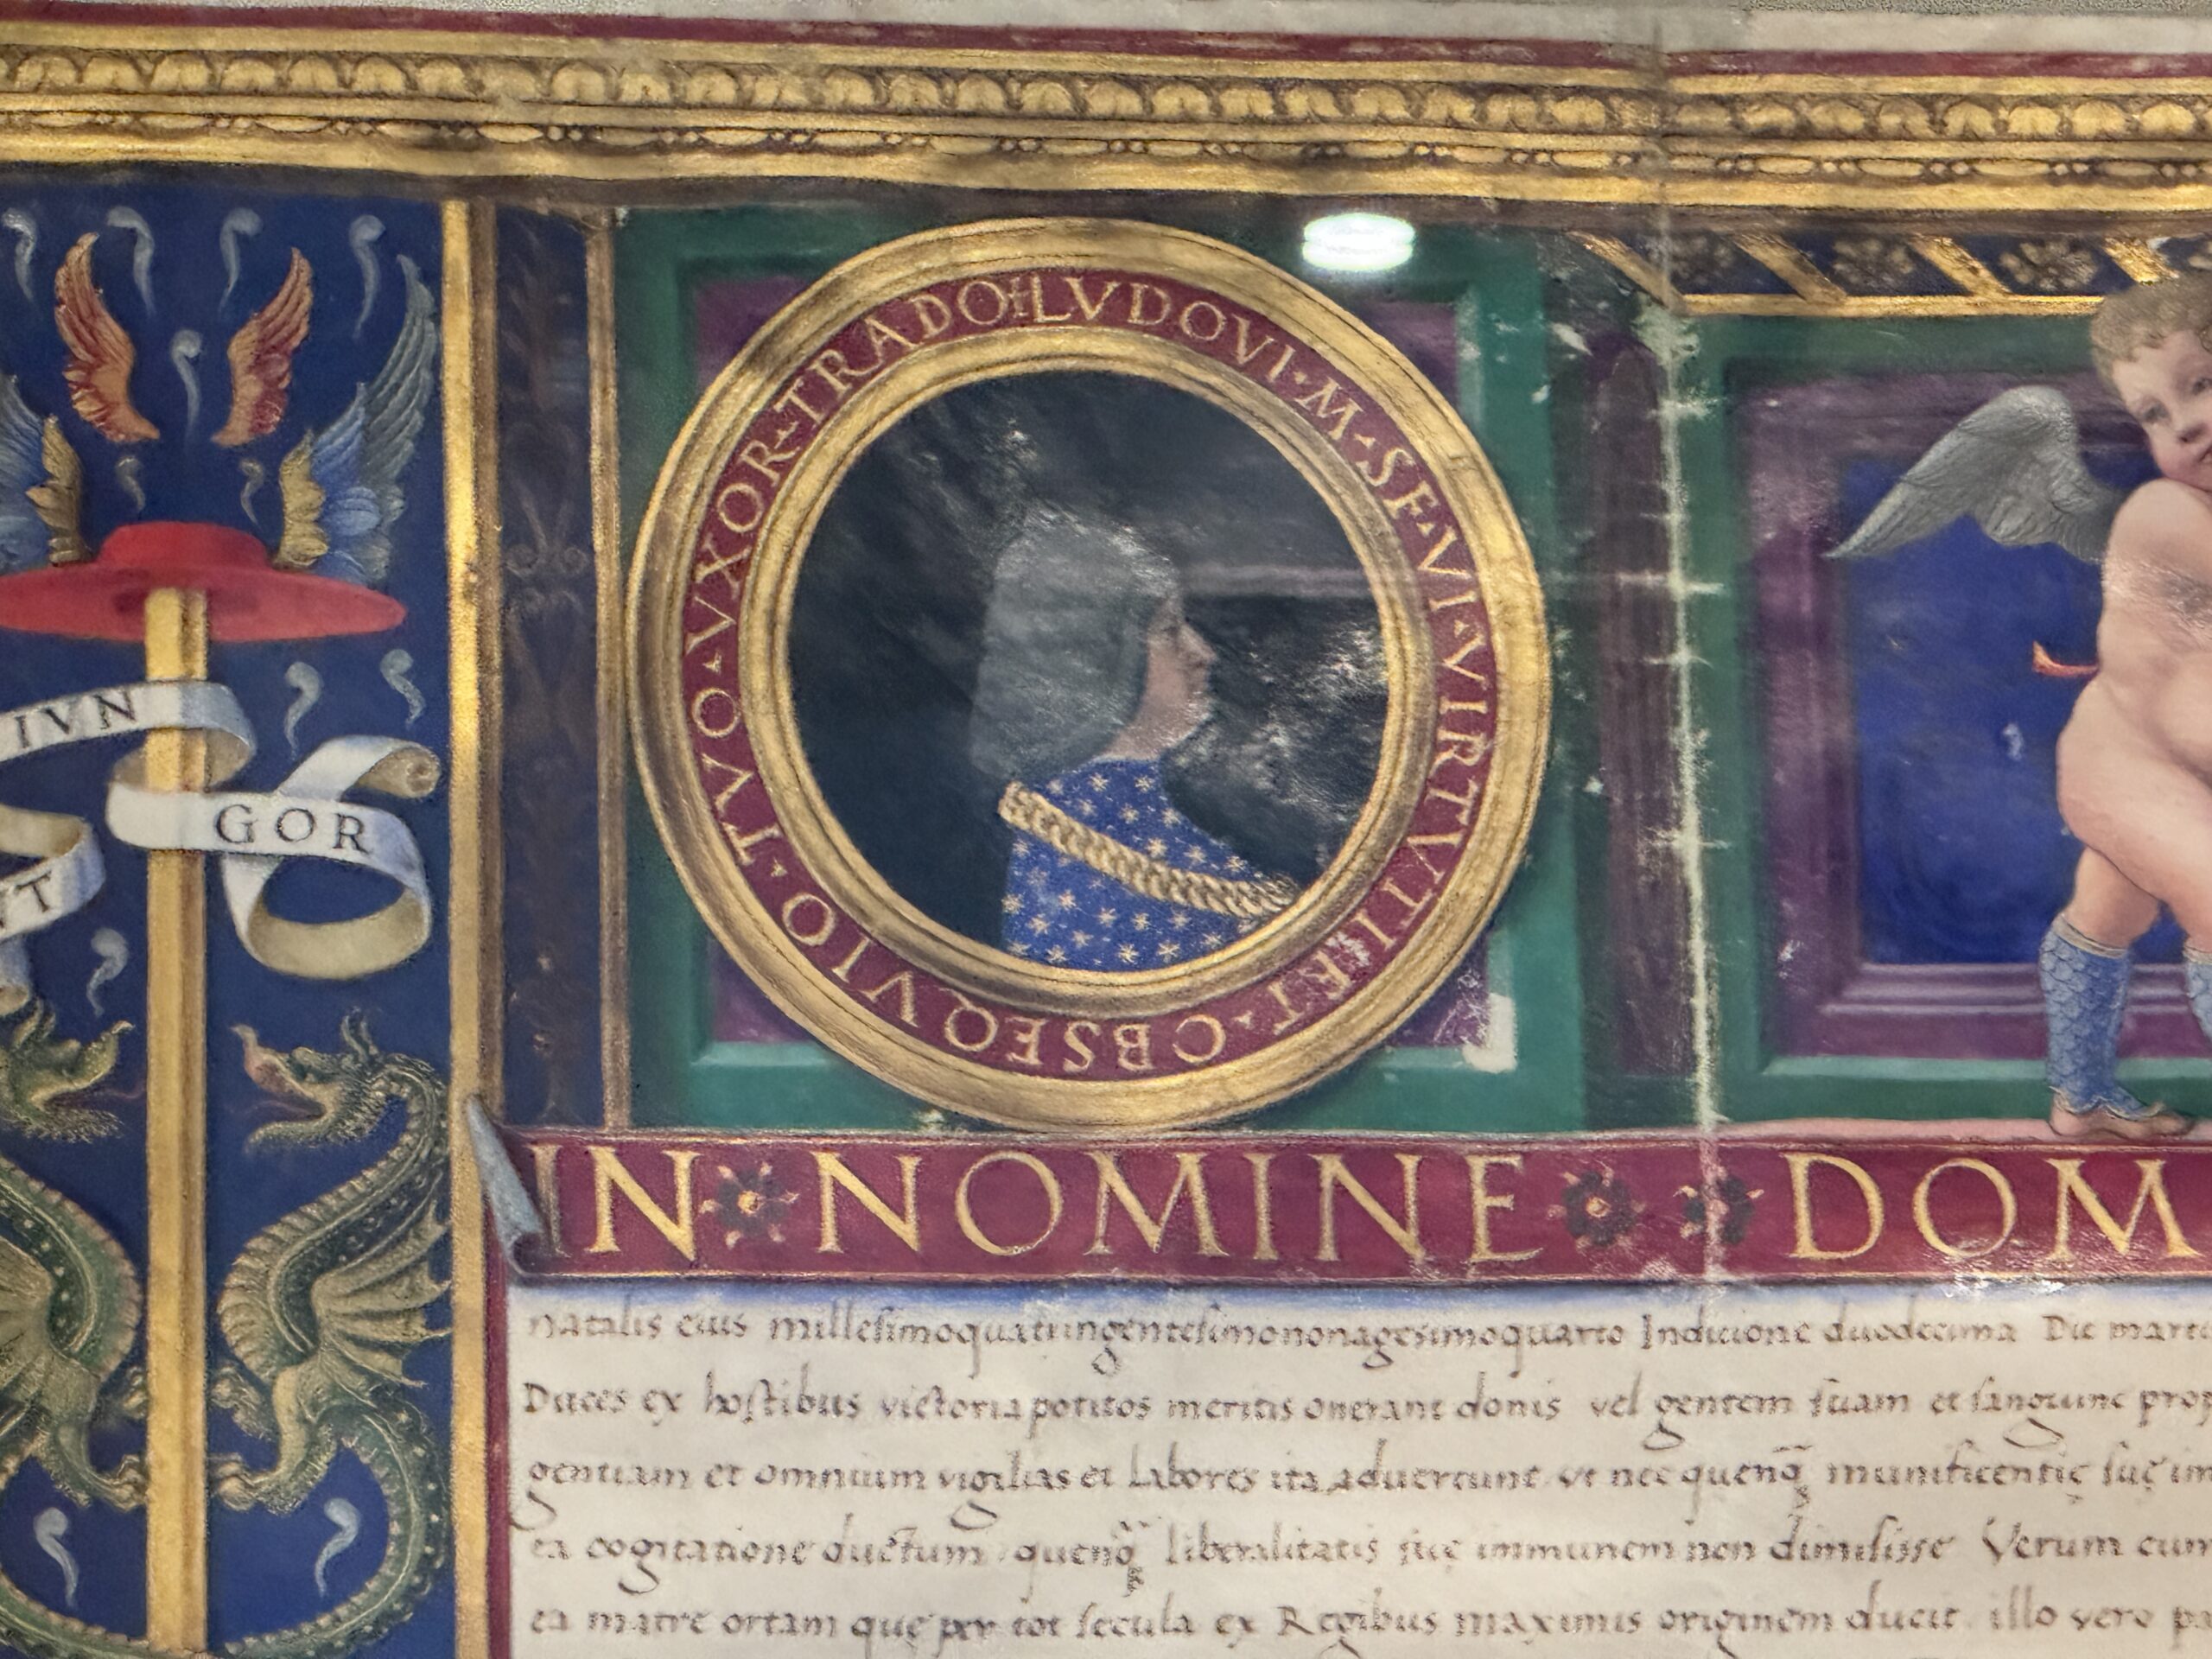 LVDOVI · M · SF · VI · VIRTVTI · ET · OBSEQVIO · TVO · VXOR · TRADOR
IVN
GOR
IN NOMINE DOM
natalis eius millesimoquatringentesimononagesimoquarto Indicione duodecima Die mart
Duces ex hostibus victoria potitos meritis onerant donis vel gentem suam et sanguine prop
gentiam et omnium vigilias et labores ita aduertunt vt nec quenq munificentię suę im
ea cogitatione ductum quenq liberalitatis suę immunem non dimisisse Verum cum
ea matre ortam quę per tot secula ex Regibus maximis originem ducit illo vero p